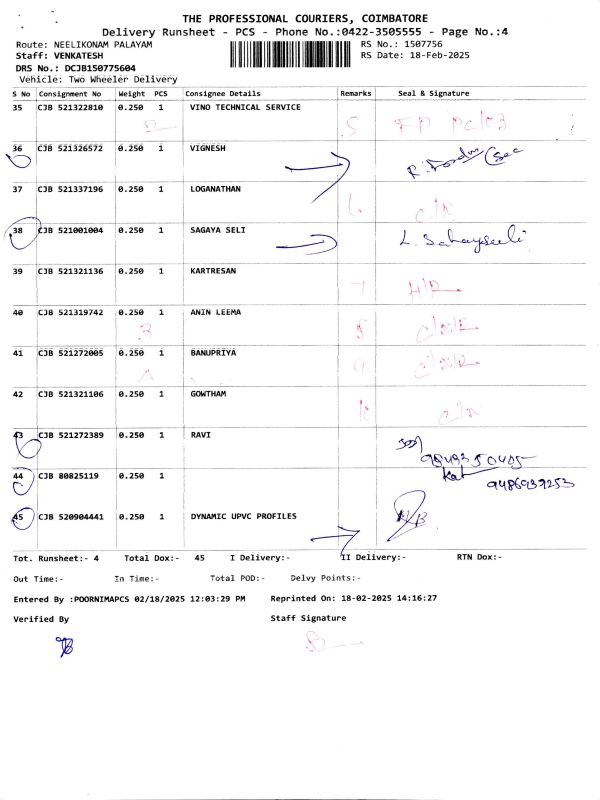 THE PROFESSIONAL COURIERS, COIMBATORE
Delivery Runsheet - PCS - Phone No.:0422-3505555 - Page No.:4
Route: NEELIKONAM PALAYAM RS No.: 1507756
Staff: VENKATESH RS Date: 18-Feb-2025
DRS No.: DCJB150775604
Vehicle: Two Wheeler Delivery
S No Consignment No Weight PCS Consignee Details Remarks Seal & Signature
35 CJB 521322810 0.250 1 VINO TECHNICAL SERVICE
5
36 CJB 521326572 0.250 1 VIGNESH
37 CJB 521337196 0.250 1 LOGANATHAN
38 CJB 521001004 0.250 1 SAGAYA SELI
39 CJB 521321136 0.250 1 KARTRESAN
40 CJB 521319742 0.250 1 ANIN LEEMA
3 8
41 CJB 521272005 0.250 1 BANUPRIYA
9
42 CJB 521321106 0.250 1 GOWTHAM
43 CJB 521272389 0.250 1 RAVI
44 CJB 80825119 0.250 1
9486939253
45 CJB 520904441 0.250 1 DYNAMIC UPVC PROFILES
Tot. Runsheet:- 4 Total Dox:- 45 I Delivery:- II Delivery:- RTN Dox:-
Out Time:- In Time:- Total POD:- Delvy Points:-
Entered By :POORNIMAPCS 02/18/2025 12:03:29 PM Reprinted On: 18-02-2025 14:16:27
Verified By Staff Signature